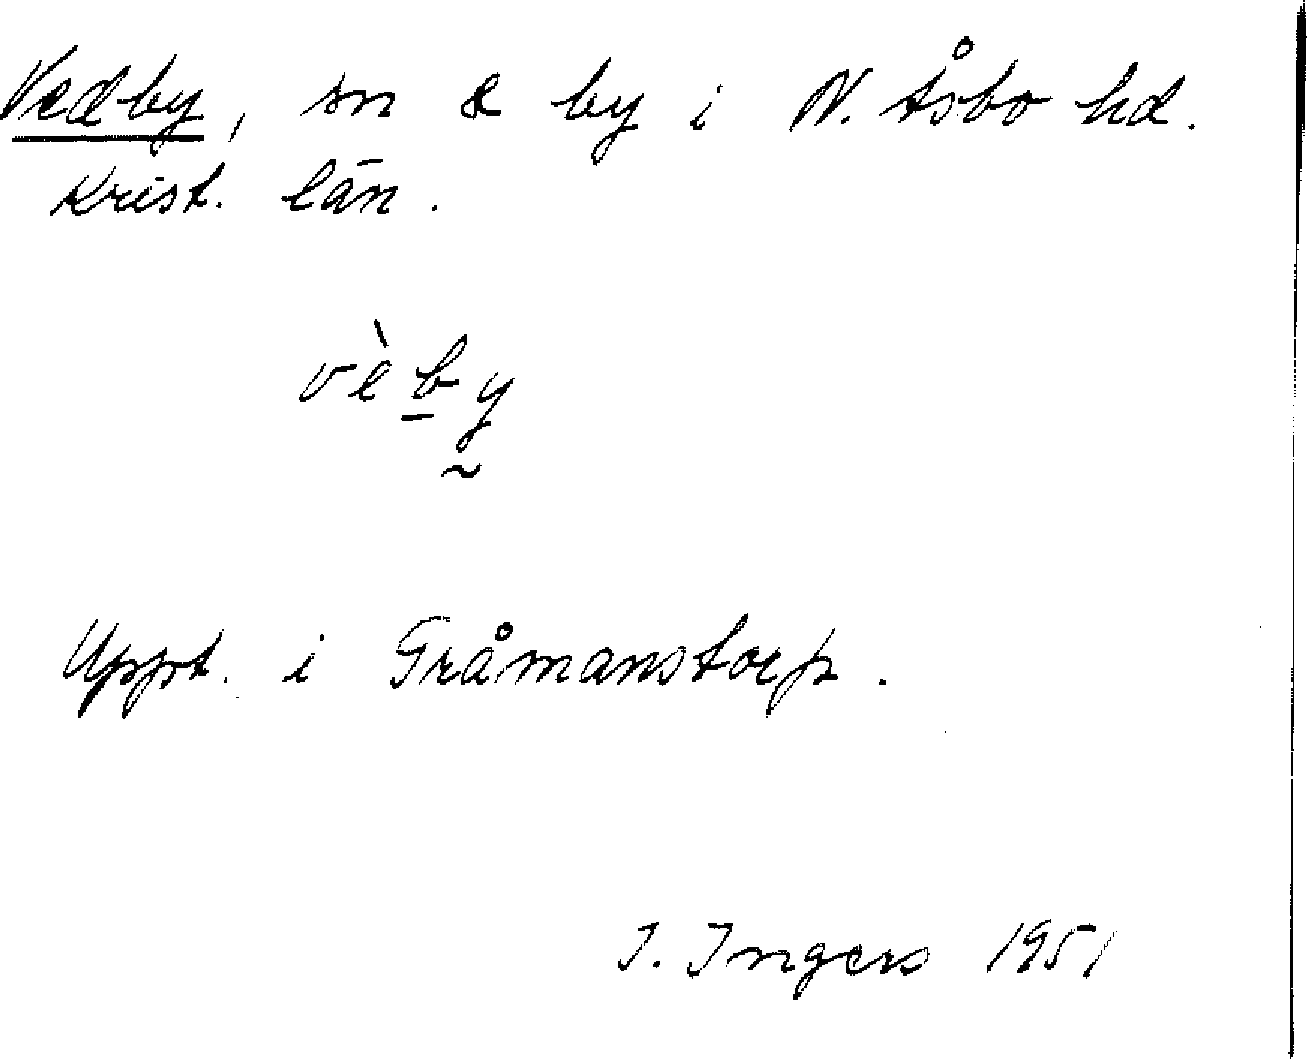 Vedby, sn & by i N. Åsbo hd.
Krist. län.
vèby
Uppt. i Gråmanstorp.
I. Ingers 1951